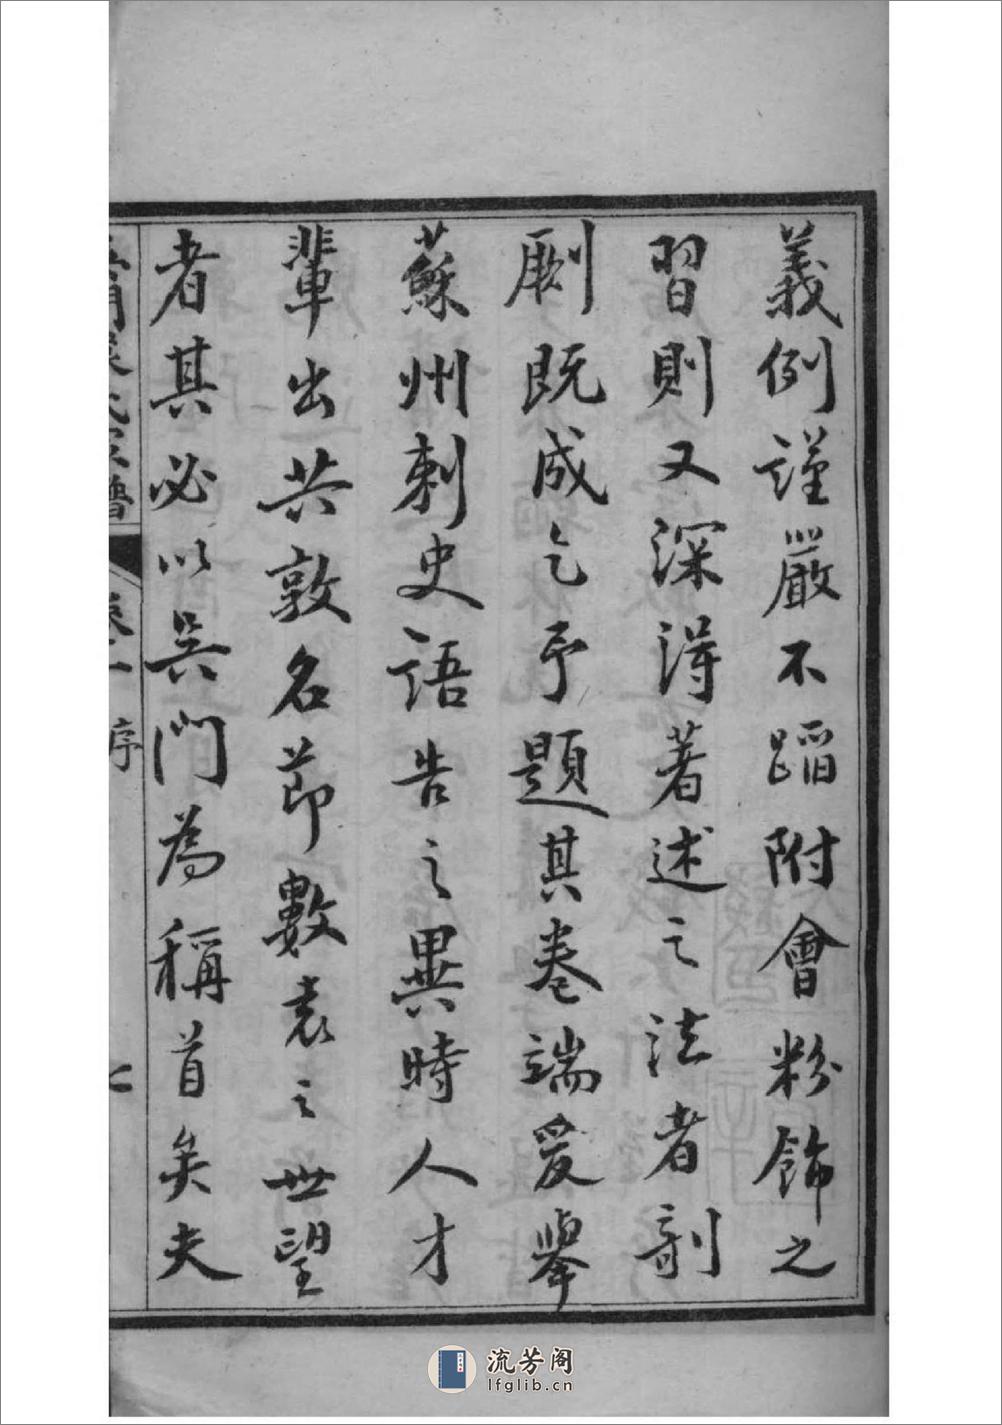 義例謹嚴不蹈附會粉飾之
習則又深得著述之法者剞
劂既成乞予題其卷端爰舉
蘇州刺史語告之異時人才
輩出共敦名節數袁之世望
者其必以吳門為稱首矣夫
吳門袁氏家譜
卷一
序
七
流芳阁
lfglib.cn